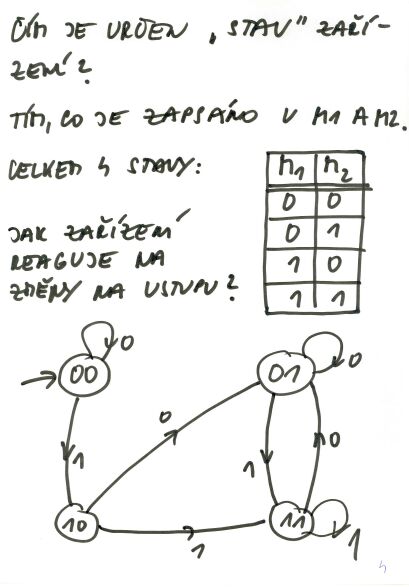 ČÍM JE URČEN „STAV“ ZAŘÍ-
ZENÍ?
TÍM, CO JE ZAPSÁNO V M1 A M2.
CELKEM 4 STAVY:
M1 M2
0 0
0 1
1 0
1 1
JAK ZAŘÍZENÍ
REAGUJE NA
ZMĚNY NA VSTUPU?
0
00
01
0
1
0
1
0
10
1
11
1
4